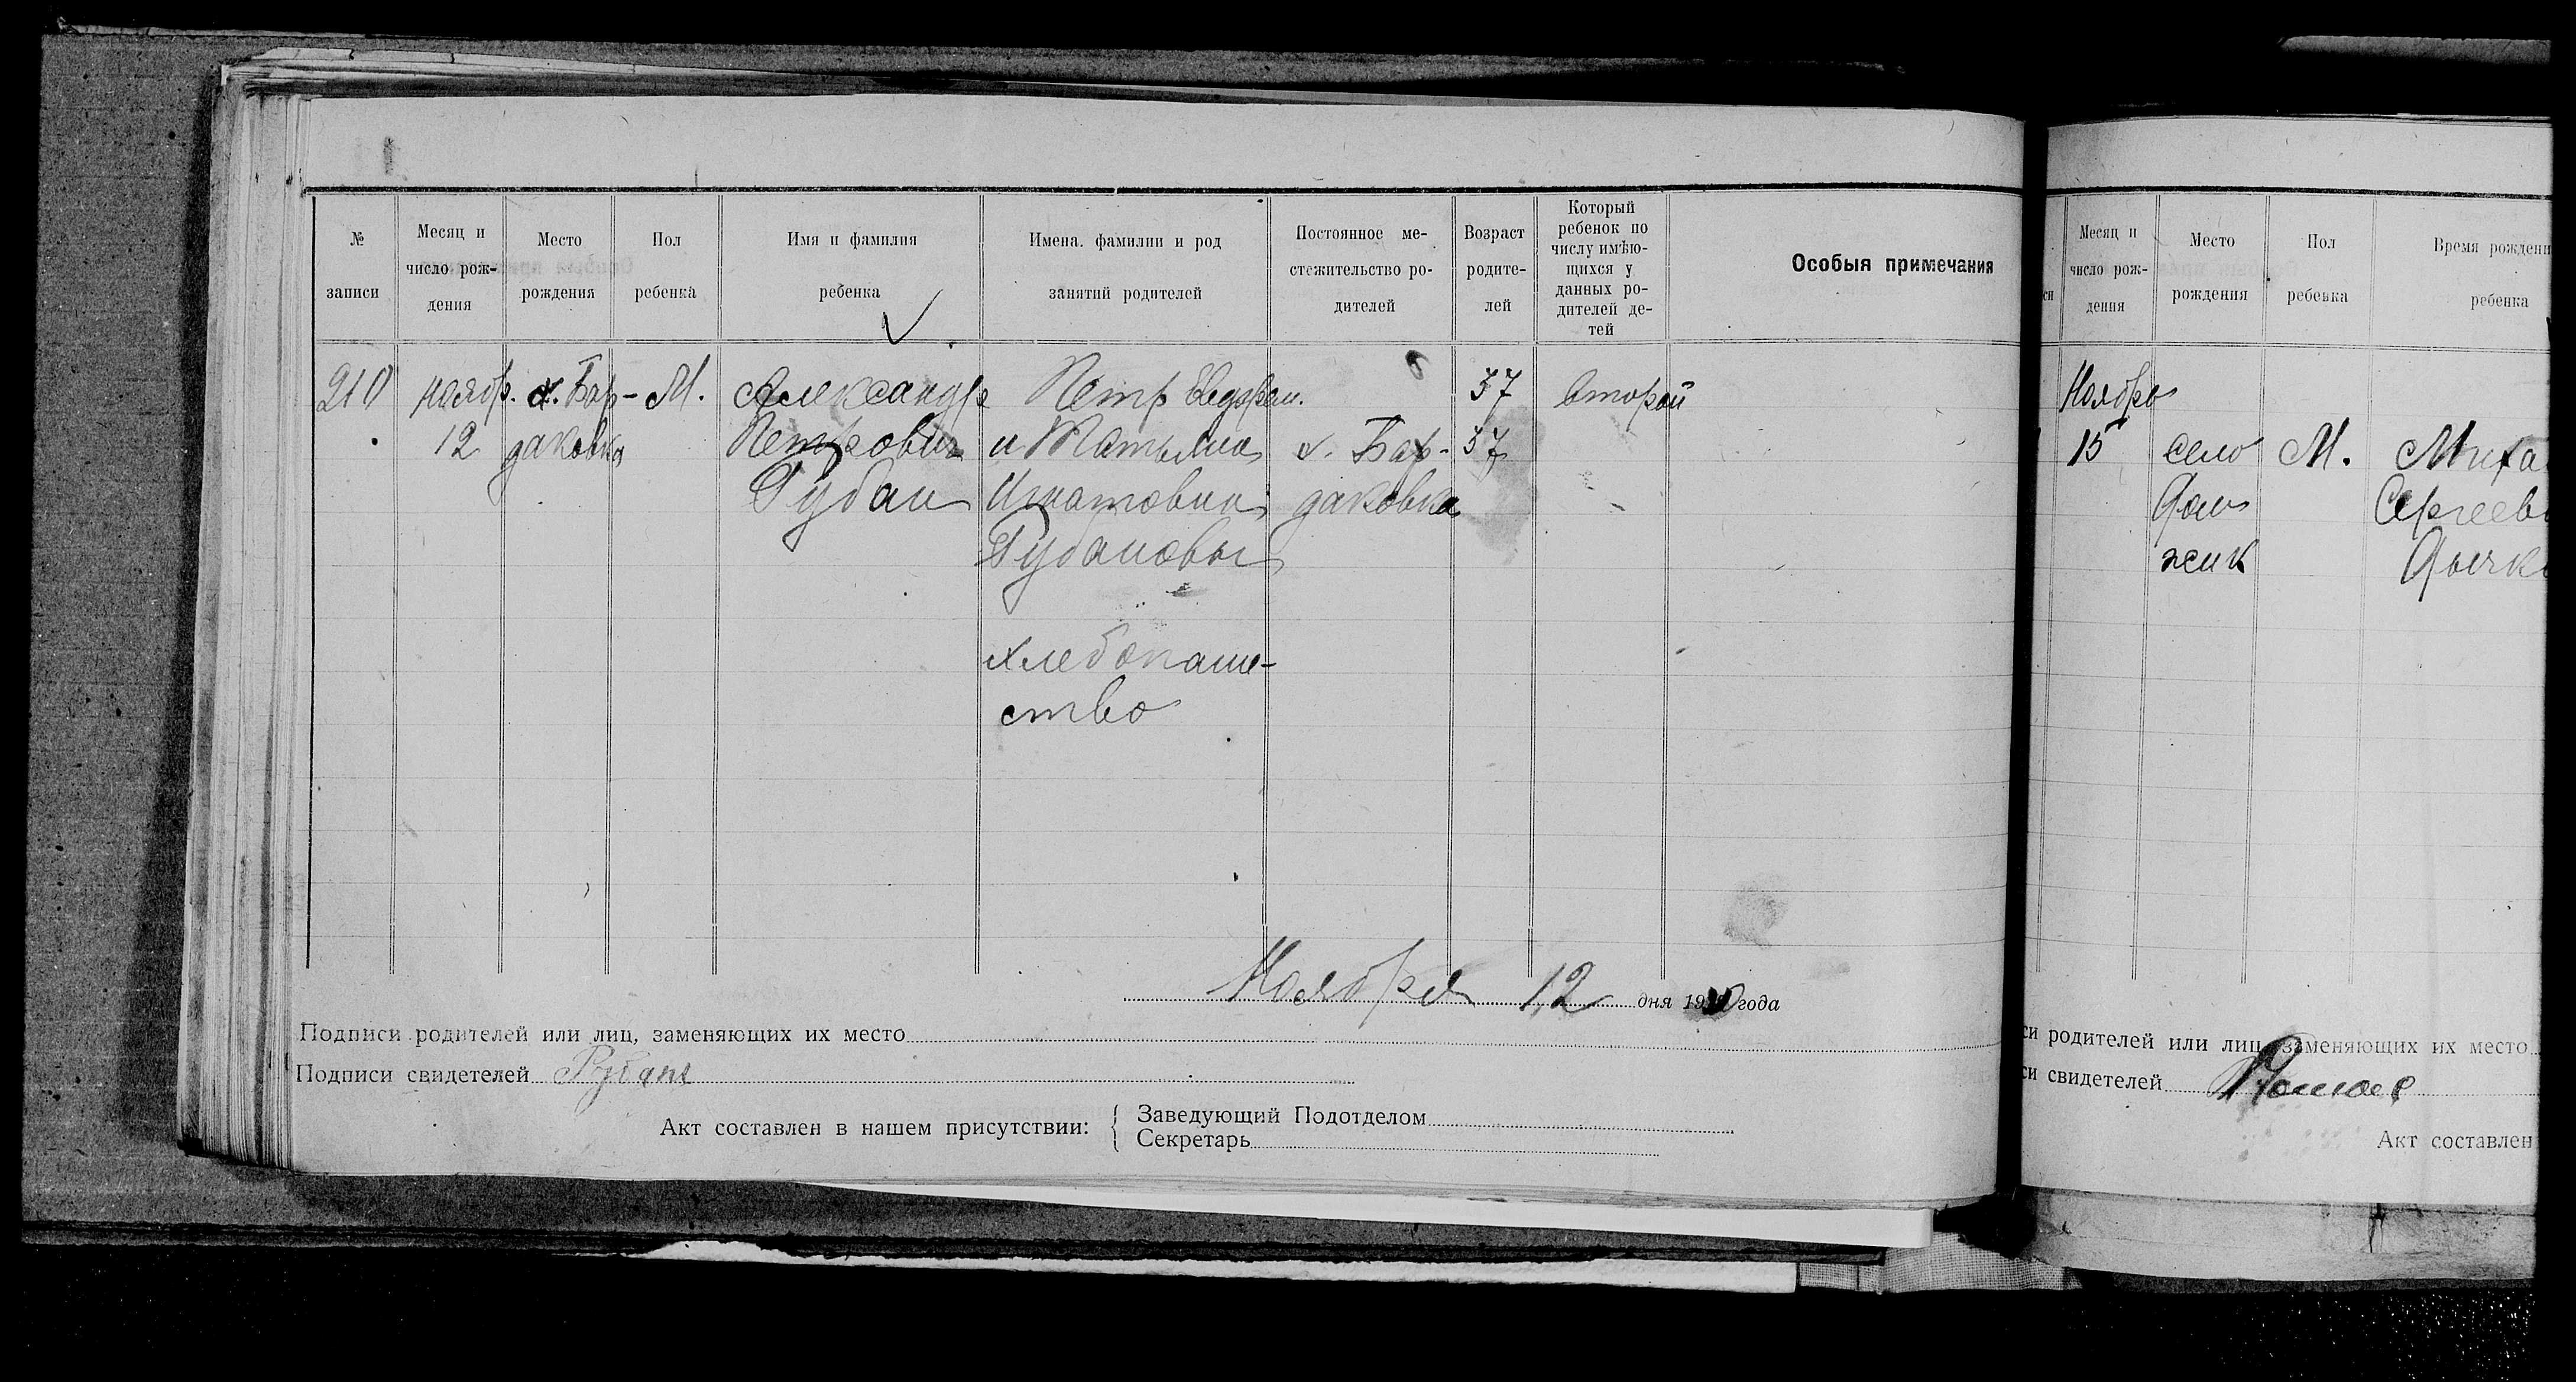 № записи
Месяц и число рож- дения
Место рождения
Пол ребенка
Имя и фамилия ребенка
Имена. фамилии и род занятий родителей
Постоянное ме- стежительство ро- дителей
Возраст родите- лей
Который ребенок по числу имѣю- щихся у данных ро- дителей де- тей
Особыя примечания
210 ноябр. х. Бар- М. Александр Петр 37 второй
12 даковка Петрович и Татьяна х. Бар- 37
Губан Игнатовна даковка
Губановы
хлебопаше-
ство
Ноября 12 дня 19 года
Подписи родителей или лиц, заменяющих их место
Подписи свидетелей Губан
Акт составлен в нашем присутствии:
Заведующий Подотделом
Секретарь
си
Месяц и число рож- дения
Место рождения
Пол ребенка
Время рождени
ребенка
Ноябрь
15 село М. Миха
Сергеев
жик
си родителей или лиц, заменяющих их место
си свидетелей
Акт составлен